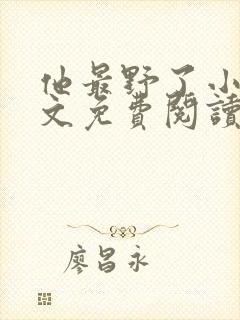 他最野了小
文免費閱讀
廖昌永